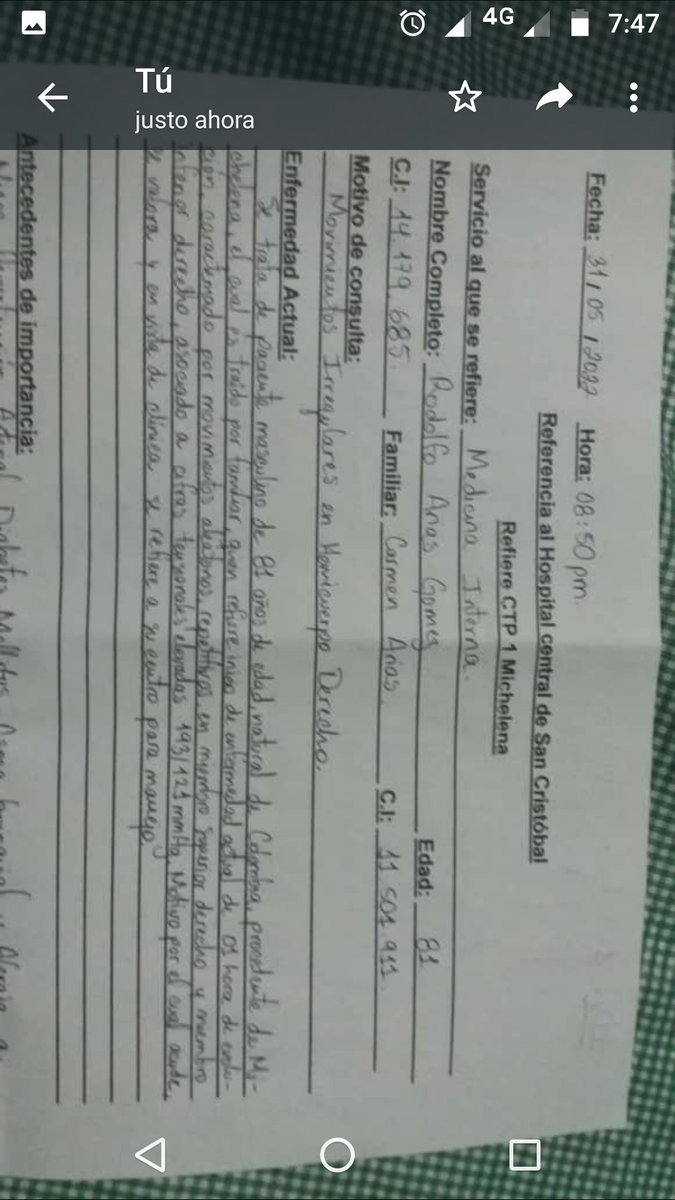 4G
7:47
Tú
justo ahora
Fecha: 31/05/2022 Hora: 08:50pm.
Referencia al Hospital central de San Cristóbal
Refiere CTP 1 Michelena
Servicio al que se refiere: Medicina Interna.
Nombre Completo: Rodolfo Arias Gomez Edad: 81
C.I: 14.179.685. Familiar: Carmen Arias. C.I: 11 501 911.
Motivo de consulta:
Movimientos Irregulares en Hemicuerpo Derecho.
Enfermedad Actual:
Se trata de paciente masculino de 81 años de edad, natural de Colombia, procedente de Mi-
chelena, el cual es traído por familiar, quien refiere inicio de enfermedad actual de 01 hora de evolu-
cion, caracterizado por movimientos repetitivos, en miembro superior derecho y miembro
inferior derecho, asociado a cifras tensionales elevadas 193/121 mmHg. Motivo por el cual acude,
se valora y en vista de clinica se refiere a su centro para manejo
Antecedentes de importancia:
Diabetes Mellitus